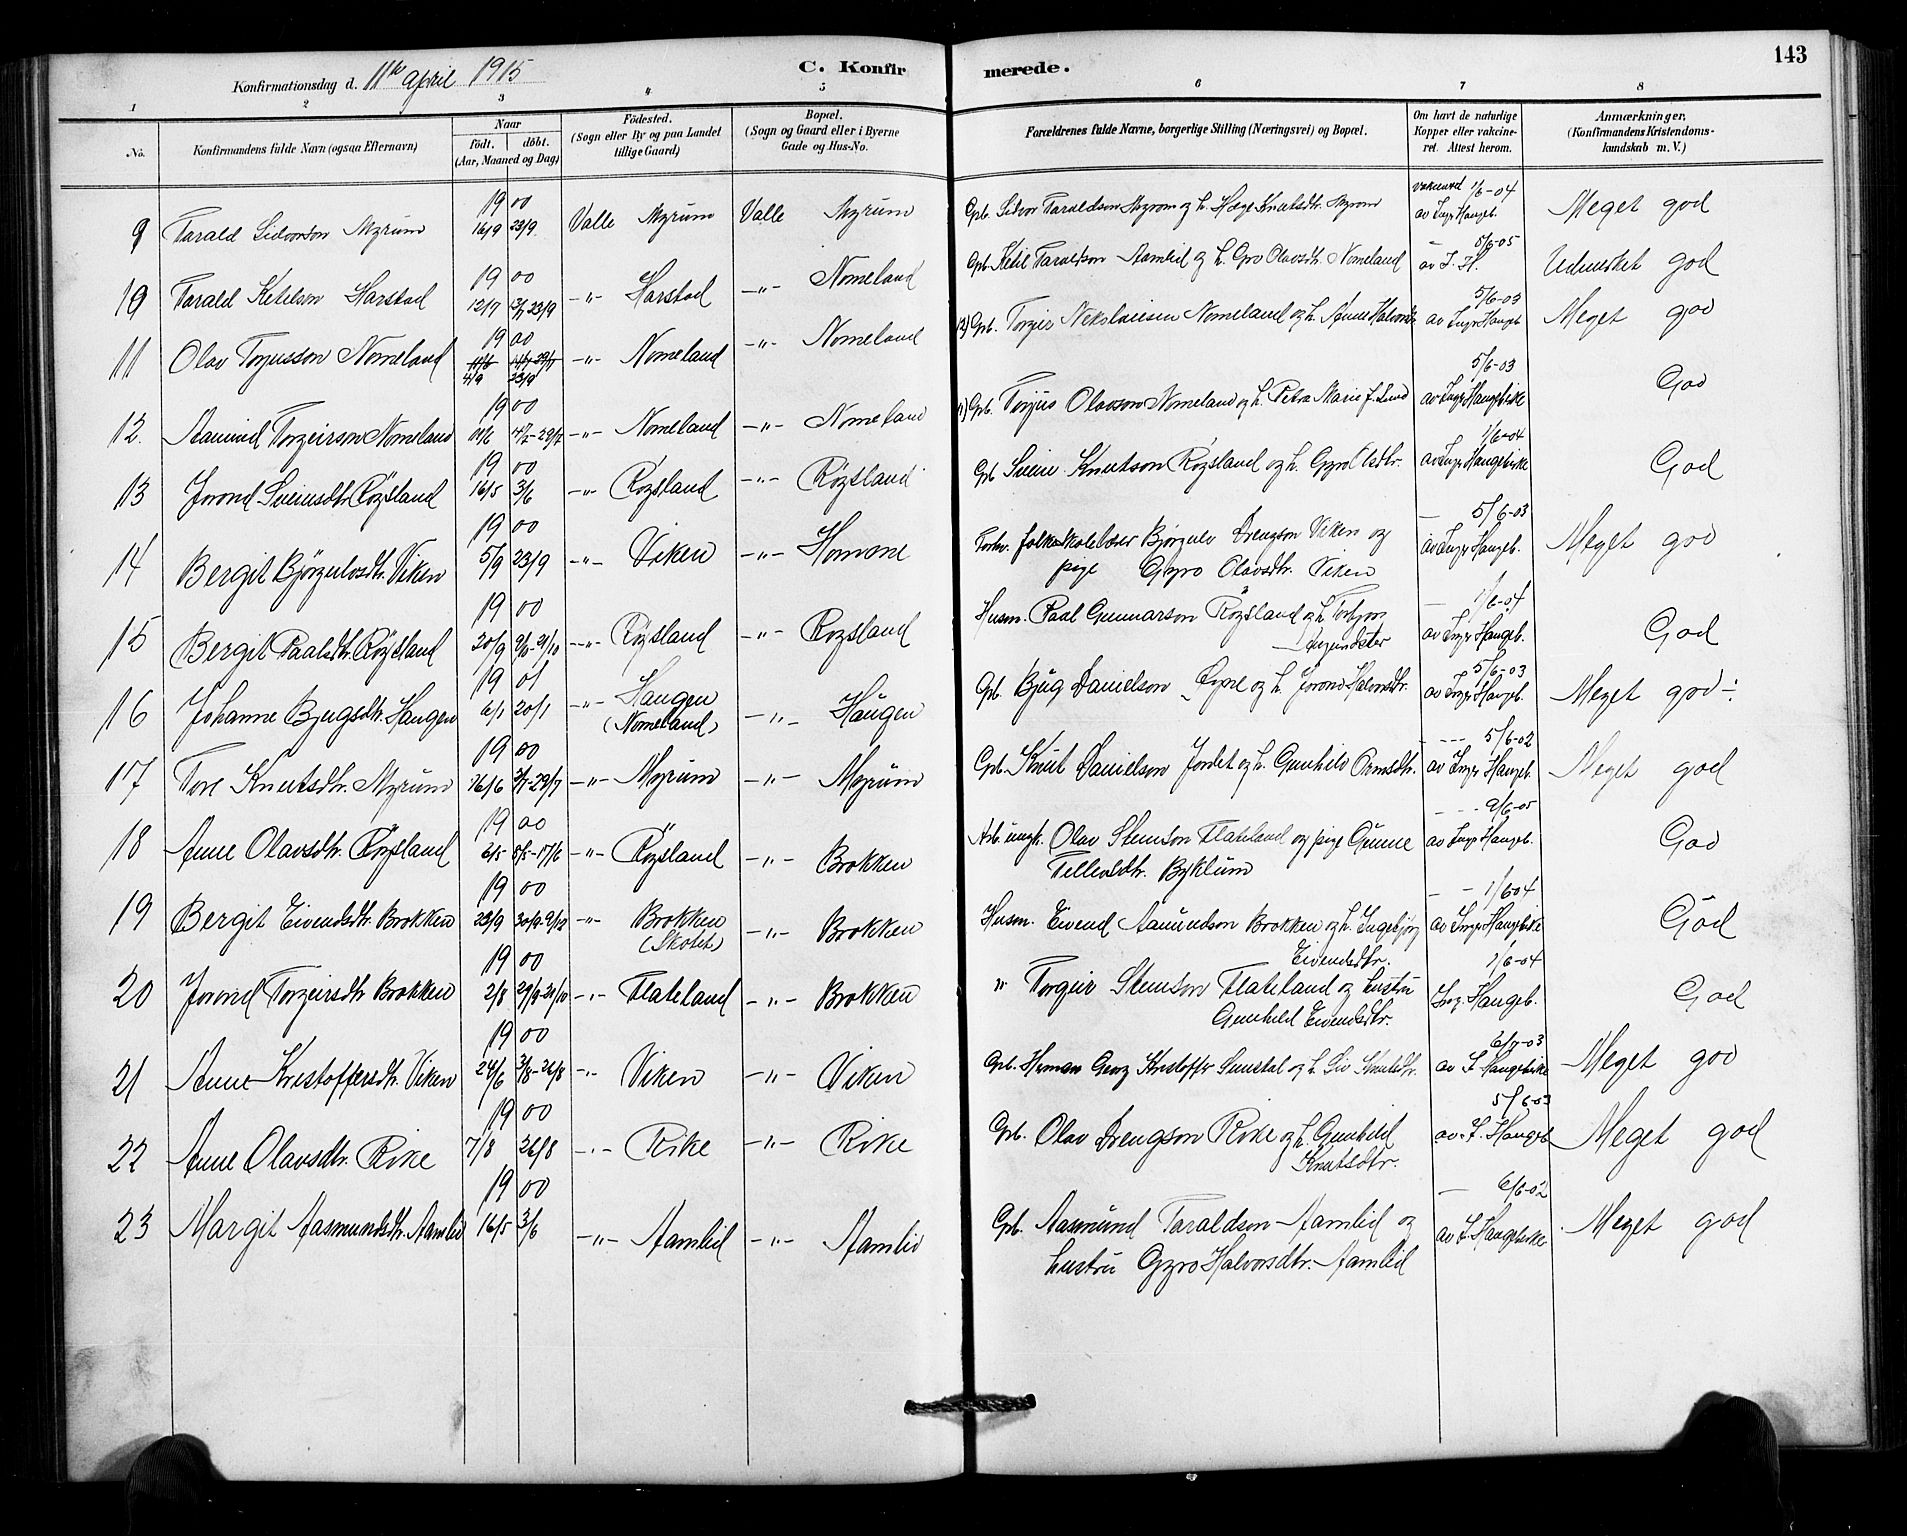 143
Konfirmationsdag d. 11te April 1915
C. Konfirmerede.
1 2 3 4 5 6 7 8
No. Konfirmandens fulde Navn (ogsaa Efternavn) Naar født. døbt. (Aar, Maaned og Dag) Fødested. (Sogn eller By og paa Landet tillige Gaard) Bopæl. (Sogn og Gaard eller i Byerne Gade og Hus-No. Forældrenes fulde Navne, borgerlige Stilling (Næringsvei) og Bopæl. Om havt de naturlige Kopper eller vakcineret. Attest herom. Anmærkninger, (Konfirmandens Kristendomskundskab m. V.)
19 00
9 Tarald Sidvorson Myrum 16/9 23/9 Valle Myrum Valle Myrum Gpb. Sidvor Taraldson Myrom og h. Hæge Knutsdtr. Myrom vakcineret 1/6-04 av Ingr. Haugeb. Meget god
19 00
10 Tarald Ketilson Harstad 12/7 23/9 -"- Harstad -"- Nomeland Gpb. Ketil Taraldson Aamlid og h. Gro Olavsdtr. Nomeland 5/6-05 av I. H. Udmerket god
19 00
11 Olav Torjusson Nomeland 4/9 23/9 -"- Nomeland -"- Nomeland 12) Gpb. Torgeir Nomeland og h. Anne 5/6-03 av Ingr. Haugeb. Meget god
19 00
12. Aamund Torgeirson Nomeland -"- Nomeland -"- Nomeland 11) Gpb. Torjus Olavson Nomeland og h. Petra Marie f. Lund 5/6-03 av Ingr. Haugebirke God
19 00
13 Jorond Sveinsdtr. Røysland 16/5 3/6 -"- Røysland -"- Røysland Gpb. Svein Knutson Røysland og h. Gyro 1/6-04 av Ingr. Haugebirke God
19 00
14 Bergit Bjørgulvsdtr. Viken 5/9 23/9 -"- Viken -"- Homme Forhv. folkeskolelærer Bjørgulv Drengson Viken og
pige Gyro Olavsdtr. Viken 5/6-03 av Ingr. Haugeb. Meget god
19 00
15 Bergit Paalsdtr. Røysland 20/9 -"- Røysland -"- Røysland Husm. Paal Gunnarson Røysland og h. Torbjør
1/6-04 av Ingr. Haugeb. God
19 01
16 Johanne Bjugsdtr. Haugen 6/1 20/1 -"- Haugen (Nomeland) -"- Haugen Gpb. Bjug Danielson Øyne og h. Jorond Halvorsdtr. 5/6-03 av Ingr. Haugeb. Meget god ÷
19 00
17 Tore Knutsdtr. Myrum 26/6 -"- Myrum -"- Myrum Gpb. Knut Danielson Jordet og h. Gunhild Ormsdtr. 5/6-02 av Ingr. Haugeb. Meget god
19 00
18 Anne Olavsdtr. Røysland 6/5 5/5-17/6 -"- Røysland -"- Brokken Arb. ungk. Olav Stenson Flateland og pige Gunne
Tellevsdtr. Byklum 9/6-05 av Ingr. Haugeb. God
19 00
19 Bergit Eivendsdtr. Brokken 23/9 30/9-9/12 -"- Brokken -"- Brokken Husm. Eivend Aamundson Brokken og h. Ingebjørg
Eivendsdtr. 1/6 04 av Ingr. Haugebirke God
19 00
20 Jorond Torgeirsdtr Brokken 2/8 -"- Flateland -"- Brokken " Torgeir Stenson Flateland og hustru
Gunhild Eivendsdtr. 1/6-04 Ingr. Haugeb. God
19 00
21 Anne Kristoffersdtr. Viken 24/6 3/8-26/8 -"- Viken -"- Viken Gpb. Herman Georg Kristoffer og h. Liv 6/7-03 av I Haugebirke Meget god
19 00
22 Anne Olavsdtr. Rike 7/8 26/8 -"- Rike -"- Rike Gpb. Olav Drengson Rike og h. Gunhild
Knutsdtr. 5/6-03 av I. Haugeb. Meget god
19 00
23 Margit Aasmundsdtr. Aamlid 16/5 3/6 -"- Aamlid -"- Aamlid Gpb. Aasmund Taraldson Aamlid og
hustru Gyro Halvorsdtr. Aamlid 6/6-02 av I Haugebirke Meget god